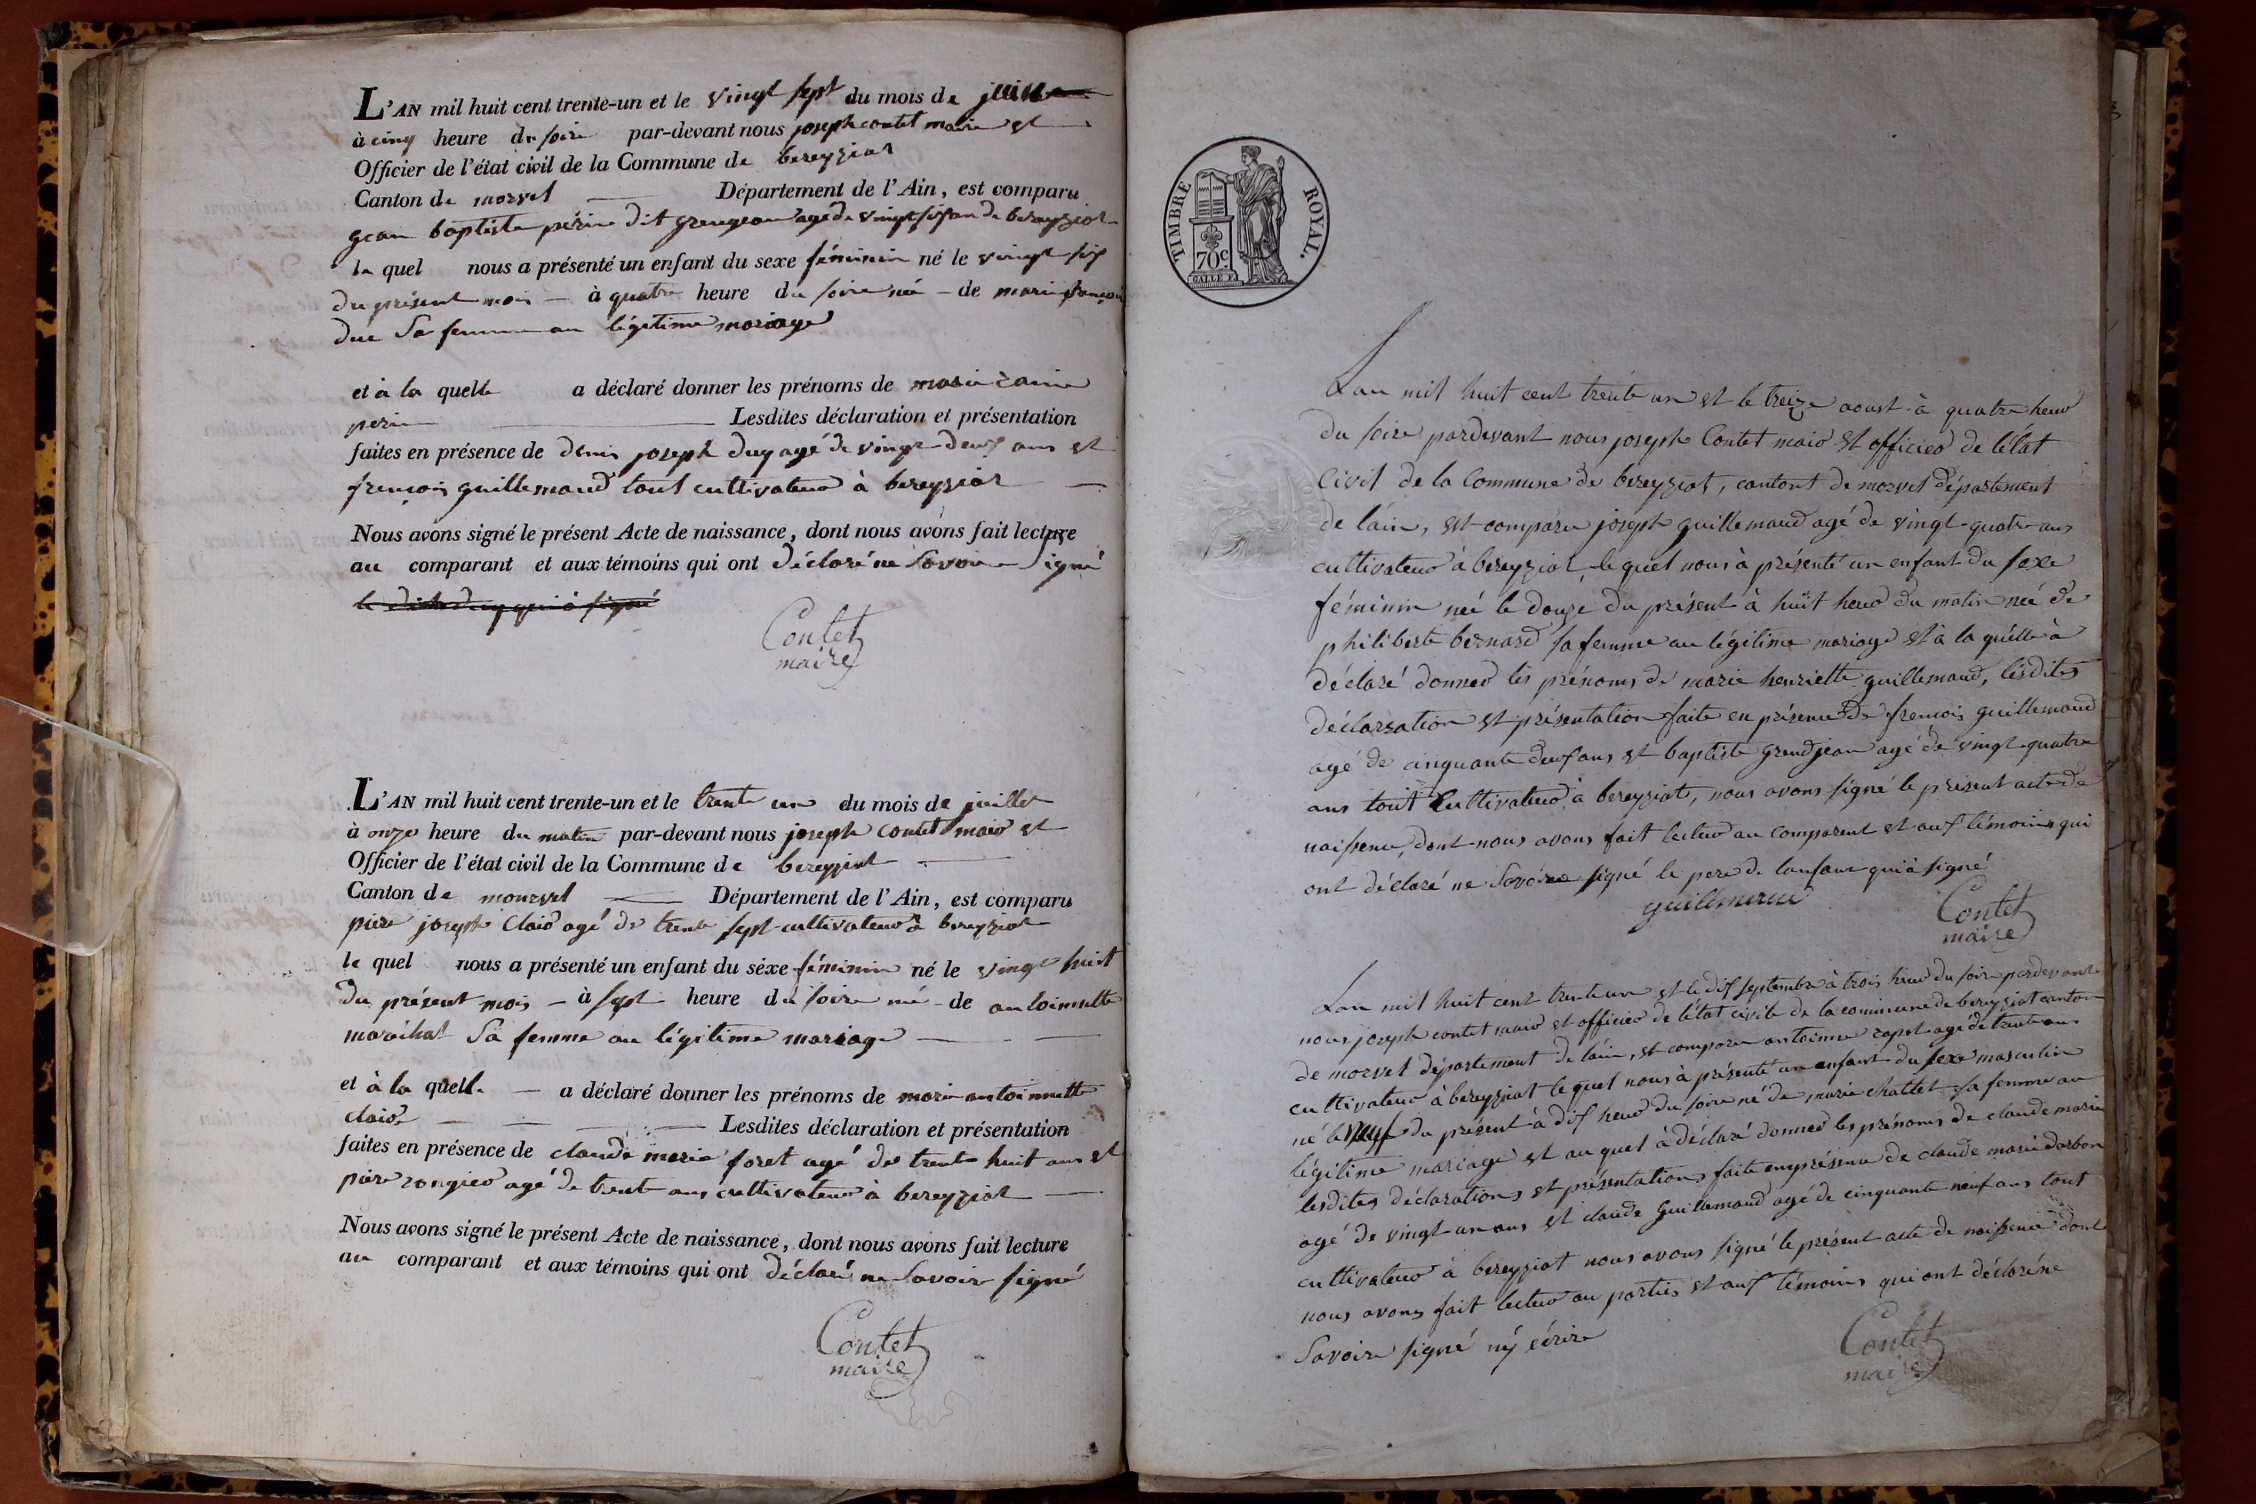 L'AN mil huit cent trente-un et le vingt sept du mois de
à cinq heure du soire par-devant nous joseph contet maire et
Officier de l'état civil de la Commune de bereyziat
Canton de morvel Département de l'Ain, est comparu
baptiste perin dit agé de vingt six an de bereyziat
le quel nous a présenté un enfant du sexe féminin né le vingt six
du présent mois à quatre heure du soire né de marie françoise
duc sa femme au légitime mariage
et à la quelle a déclaré donner les prénoms de marie
perin Lesdites déclaration et présentation
faites en présence de denis joseph duq agé de vingt deux ans et
françois guillemaud tout cultivateur à bereyziat
Nous avons signé le présent Acte de naissance, dont nous avons fait lecture
au comparant et aux témoins qui ont déclaré ne savoire signé
Contet
maire
L'AN mil huit cent trente-un et le trente un du mois de juillet
à onze heure du matin par-devant nous joseph contet maire et
Officier de l'état civil de la Commune de bereyziat
Canton de mourvel Département de l'Ain, est comparu
piere joseph claire agé de trente sept cultivateur à bereyziat
le quel nous a présenté un enfant du sexe féminin né le vingt huit
du présent mois à sept heure du soire né de antoinnette
marichal sa femme au légitime mariage
et à la quelle a déclaré donner les prénoms de marie antoinnette
claire Lesdites déclaration et présentation
faites en présence de claude marie foret agé de trente huit ans et
piere rongier agé de trente ans cultivateur à bereyziat
Nous avons signé le présent Acte de naissance, dont nous avons fait lecture
au comparant et aux témoins qui ont déclaré ne savoir signé
Contet
maire
TIMBRE ROYAL.
70c
Lan mil huit cent trente un et le treize aoust à quatre heur
du soire pardevant nous joseph Contet maire et officier de létat
Civil de la Commune de bereyziat, cantont de morvel département
de láin, est comparu joseph guillemaud agé de vingt quatre ans
cultivateur à bereyziat, le quel nous à présenté un enfant du sexe
féminin neé le douze du présent à huit heur du matin neé de
philiberte bernard sa femme au légitime mariage et à la quélle à
déclaré donner les prénoms de marie henriette guillemaud, lésdites
déclaration et présentation faite en présence de françois guillemaud
agé de cinquante deux ans et baptiste grandjean agé de vingt quatre
ans tout Cultivateur à bereyziat, nous avons signé le présent acte de
naissence, dont nous avons fait lectur au comparent et aux témoins qui
ont déclaré ne savoire signé le pere de lanfant qui à signé
Contet
maire
Lan mil huit cent trente un et le dix septembre à trois heur du soire pardevant
nous joseph contet maire et officier de létat civile de la commune de bereyziat canton
de morvel département de láin, est comparu antoinne agé de trente ans
cultivateur à bereyziat le quel nous à présenté un enfant du sexe masculin
né le neuf du présent à dix heur du soire né de marie chattet sa femme au
légitime mariage et au quel à déclaré donner les prénoms de claude marie
lesdites déclarations et présentations faite en présence de claude marie dorbon
agé de vingt un ans et claude guillemaud agé de cinquante neuf ans tout
cultivateur à bereyziat nous avons signé le présent acte de naissence dont
nous avons fait lectur au parties et aux témoins qui ont déclaré ne
savoire signé ny écrire
Contet
maire